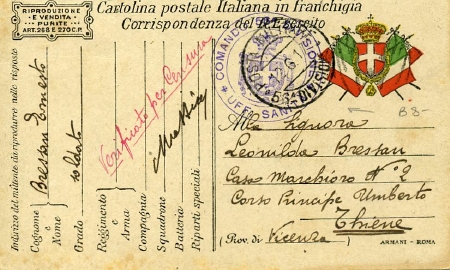 RIPRODUZIONE
E VENDITA
PUNITE
ART. 268 E 270 C.P.
Cartolina postale Italiana in franchigia
Corrispondenza del R. Esercito
COMANDO
UFF. SANI
POSTA
DIVISION
Indirizzo del mittente da riprodurre nelle risposte
Cognome e Nome Bressan Ernesto
Grado soldato
Reggimento e Arma
Compagnia
Squadrone
Batteria
Riparti speciali
Verificato per Censura
B8-
Alla Signora
Leonilda Bressan
Casa Marchioro N° 2
Corso Principe Umberto
Thiene
(Prov. di Vicenza)
ARMANI - ROMA